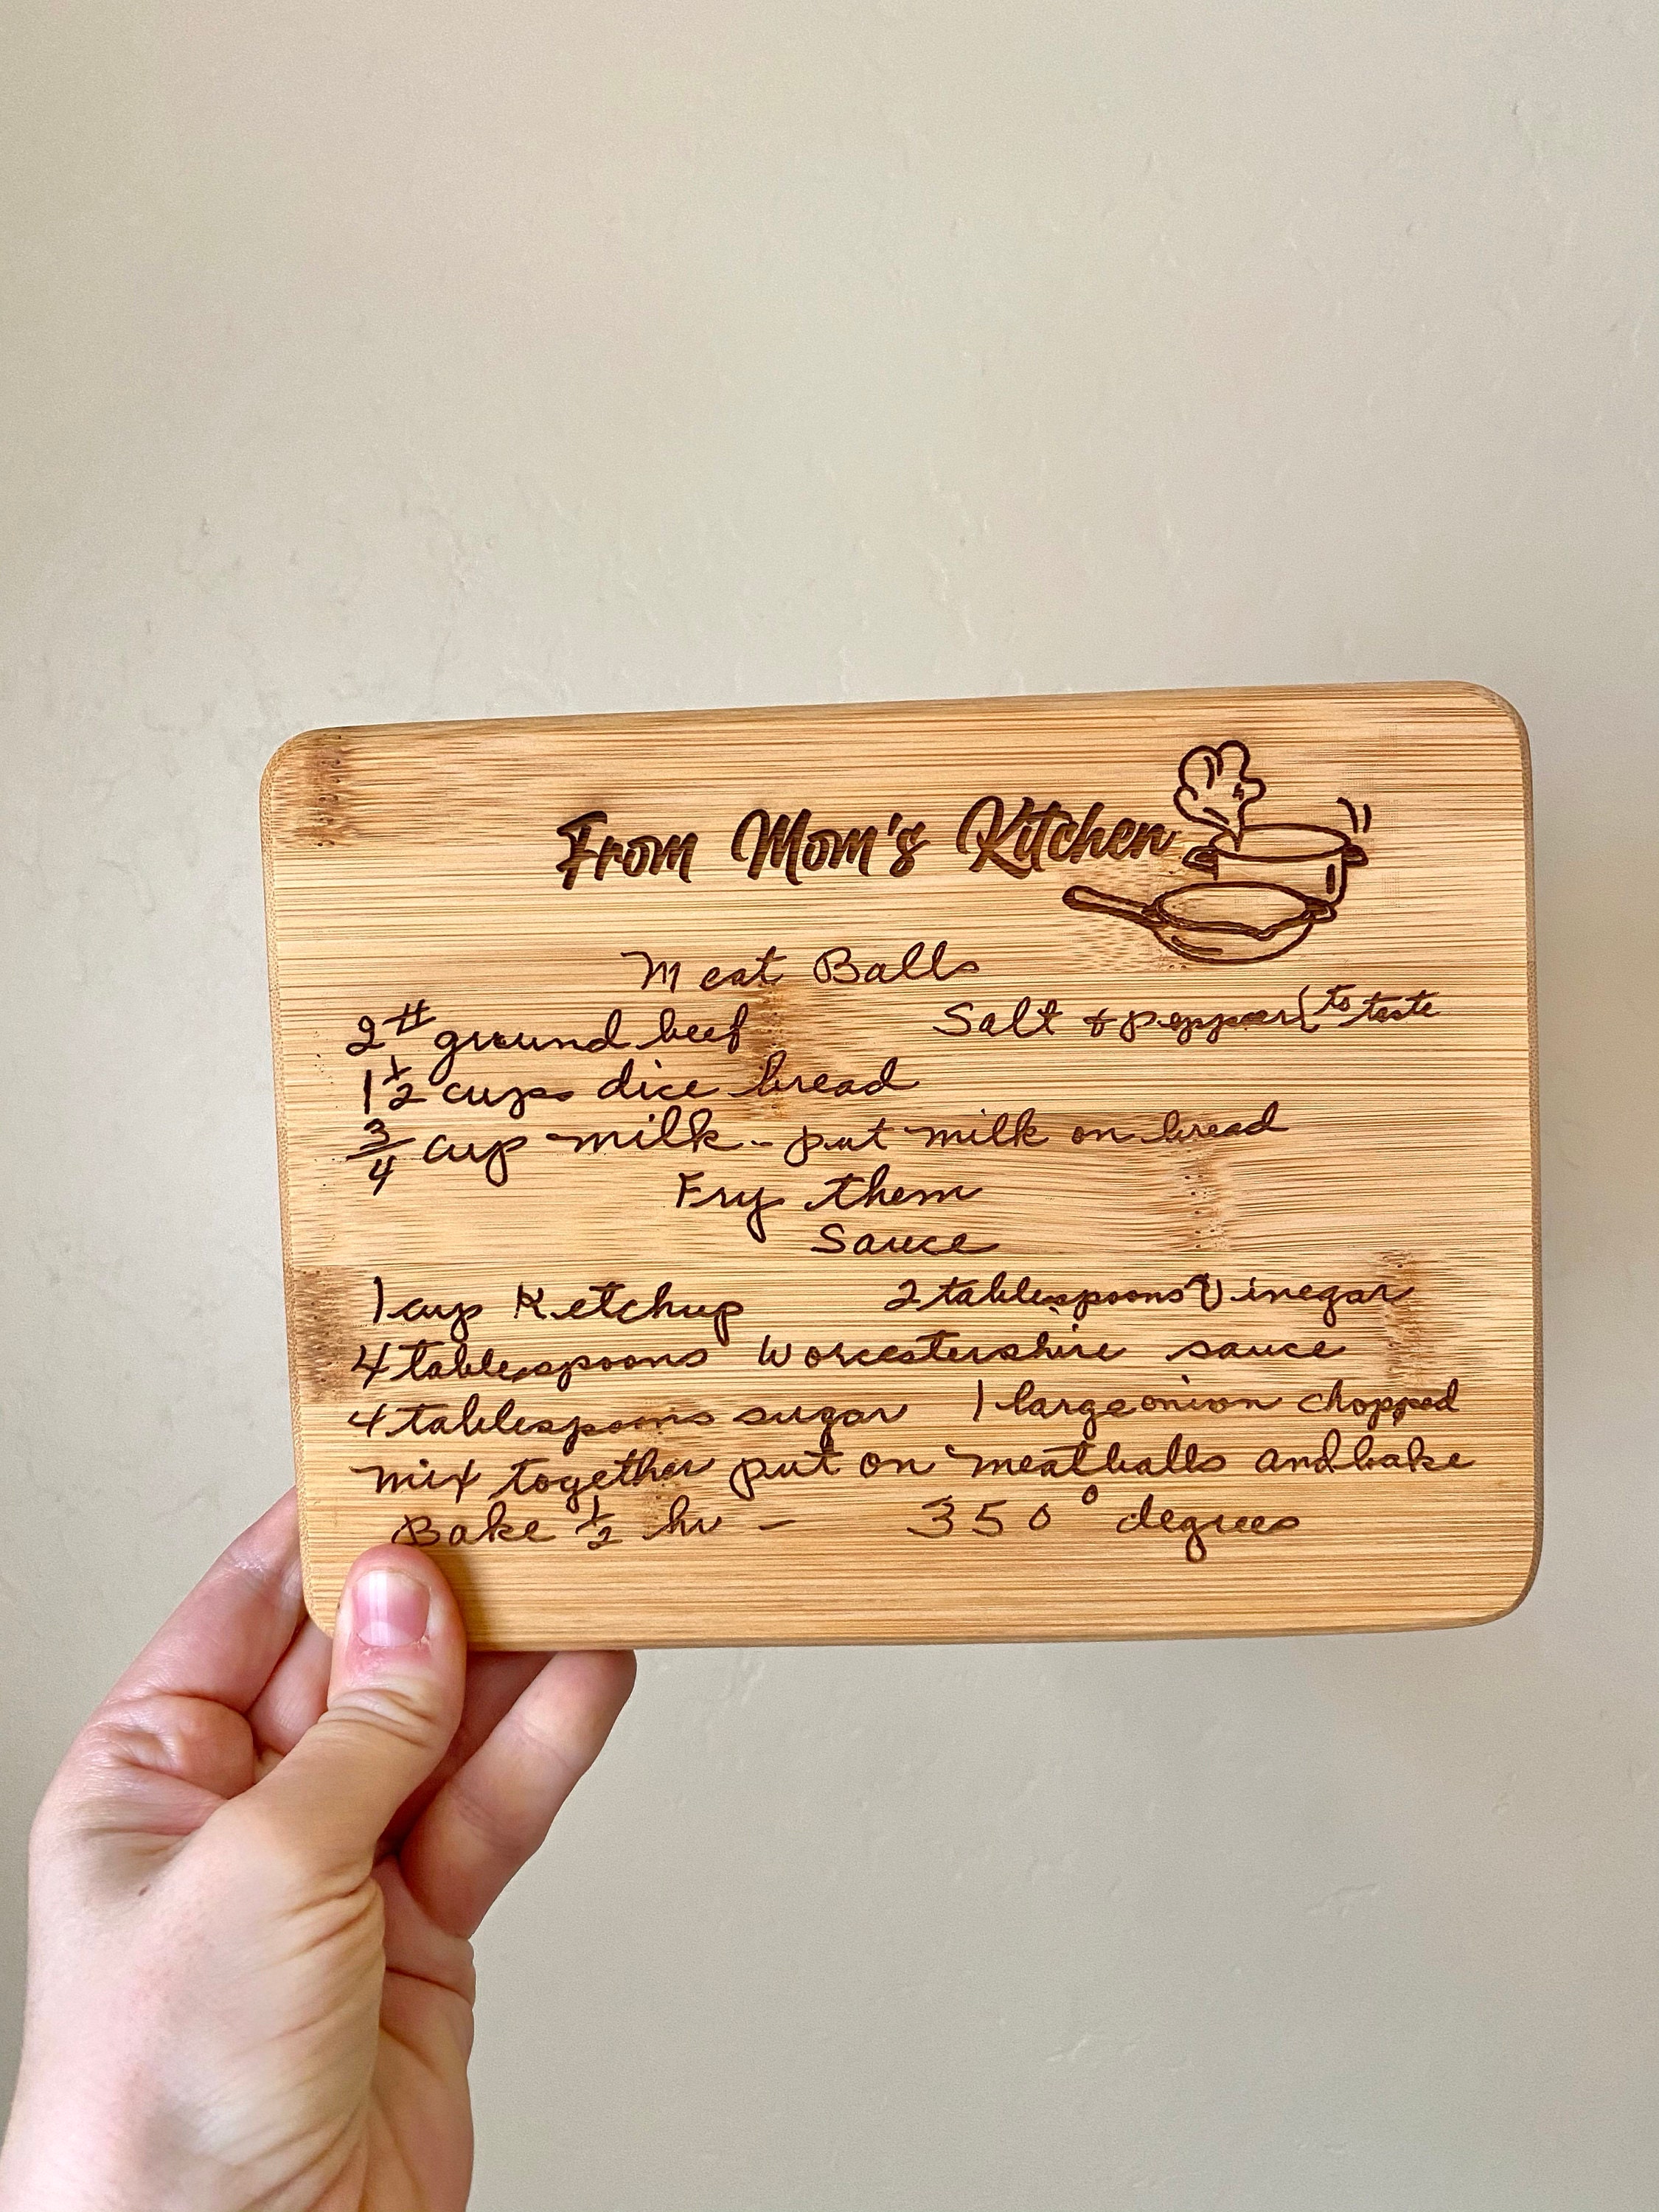 From Mom's Kitchen
Meat Balls
2# ground beef Salt & pepper { to taste
1 1/2 cups dice bread
3/4 cup milk - put milk on bread
Fry them
Sauce
1 cup Ketchup 2 tablespoons Vinegar
4 tablespoons Worcestershire sauce
4 tablespoons sugar 1 large onion chopped
mix together put on meatballs and bake
Bake 1/2 hr - 350° degrees